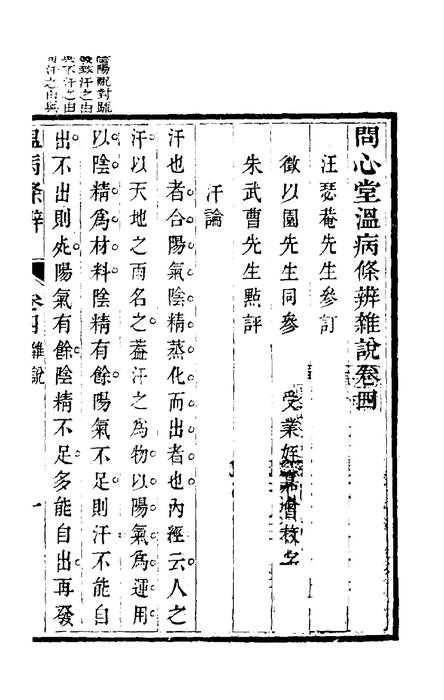 問心堂溫病條辨雜說卷四
汪瑟菴先生參訂
徵以園先生同參
受業姪嘉會校字
朱武曹先生點評
汗論
汗也者合陽氣陰精蒸化而出者也內經云人之
汗以天地之雨名之蓋汗之為物以陽氣為運用
以陰精為材料陰精有餘陽氣不足則汗不能自
出不出則死陽氣有餘陰精不足多能自出再發
溫病條辨 卷四 雜說 一
陰陽兩對疏
發致汗之由
與不汗之由